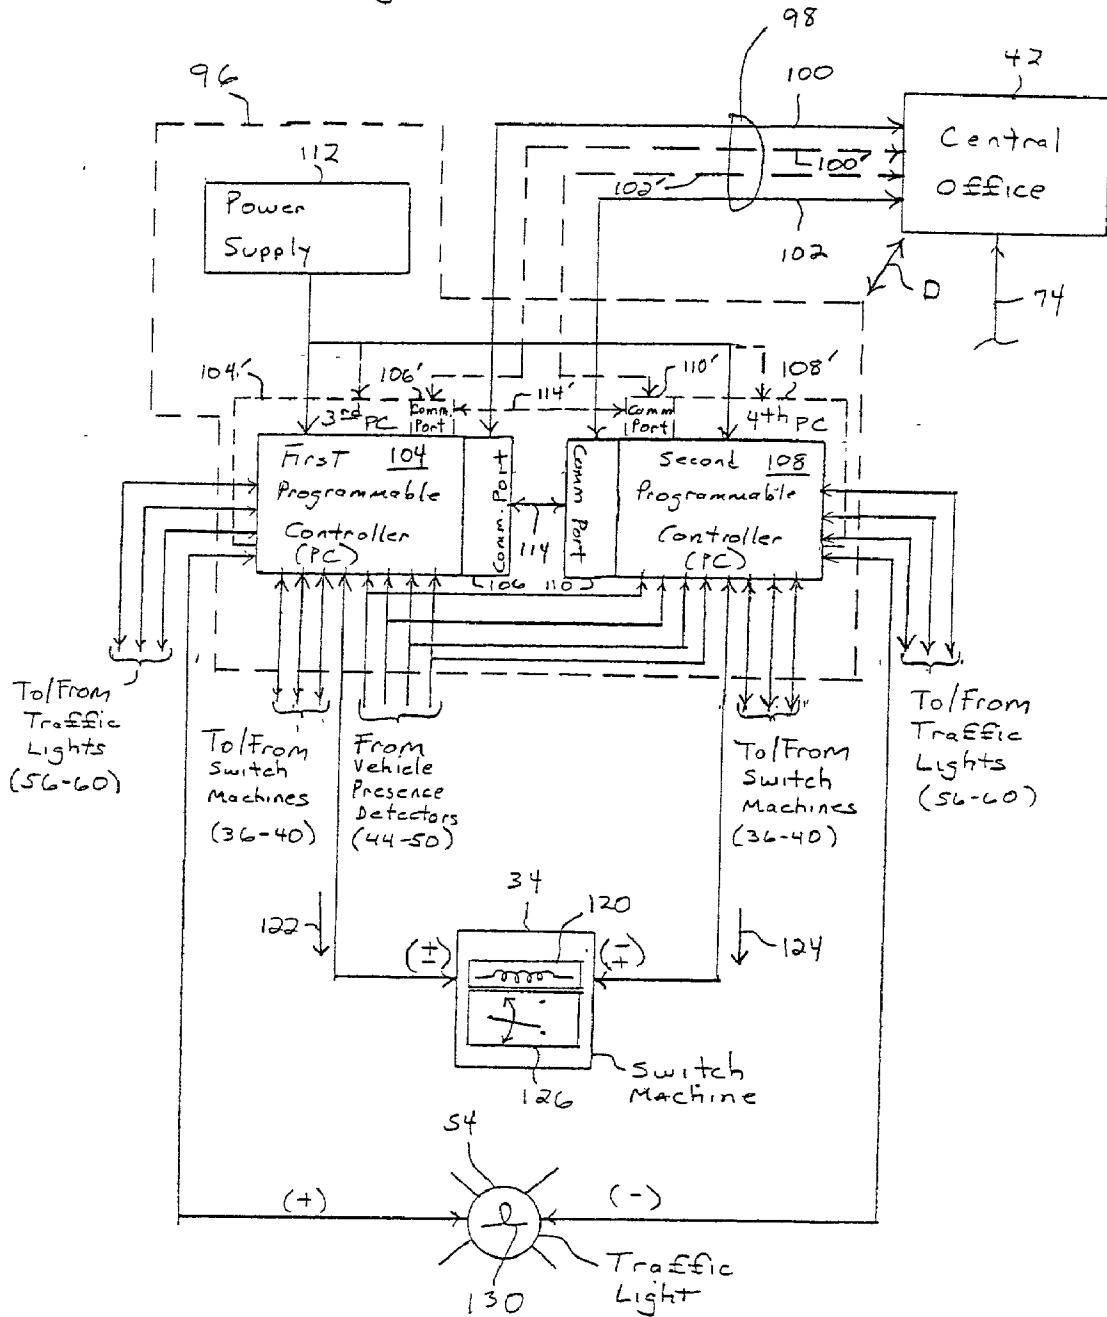 98
96
100
42
112
Central
Office
100'
102'
Power
Supply
102
D
74
104'
106'
114'
110'
108'
3rd PC
Comm.
Port
Comm
Port
4th PC
First 104
Programmable
Controller
(PC)
Comm. Port
114
Comm Port
Second 108
Programmable
Controller
(PC)
106
110
To/From
Traffic
Lights
(56-60)
To/From
Switch
Machines
(36-40)
From
Vehicle
Presence
Detectors
(44-50)
To/From
Switch
Machines
(36-40)
To/From
Traffic
Lights
(56-60)
34
120
122
(±)
(∓)
124
126
Switch
Machine
54
(+)
(-)
130
Traffic
Light